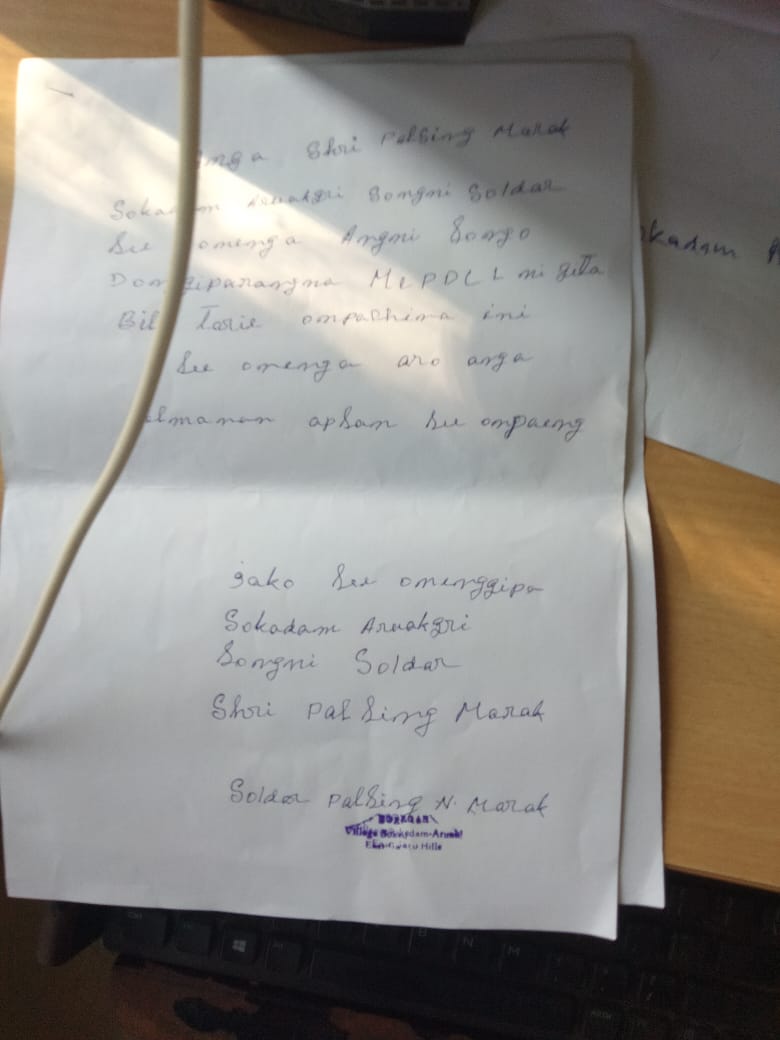 Anga Shri Palsing Marak
Sokadam Aruakgri Songni Soldar
See omenga Angni Songo
Dongiparangna MePDCL ni gita
Bil Tarie ompachima ini
See omenga aro anga
apsan See ompaeng
jako See omenggipa
Sokadam Aruakgri
Songni Soldar
Shri Palsing Marak
Soldar Palsing N. Marak
Village Sokadam-Aruak
Hills
kadam